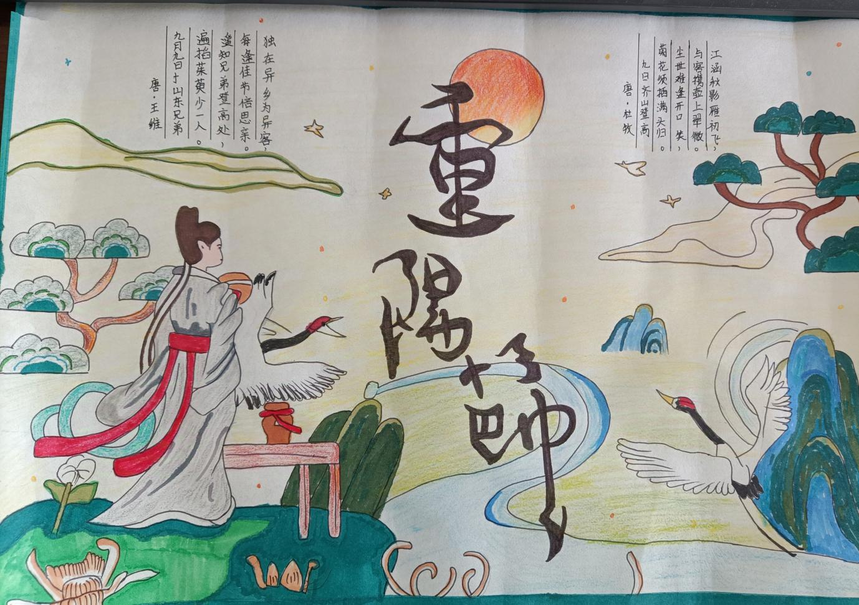 江涵秋影雁初飞，
与客携壶上翠微。
尘世难逢开口笑，
菊花须插满头归。
九日齐山登高
唐·杜牧
重陽節
独在异乡为异客，
每逢佳节倍思亲。
遥知兄弟登高处，
遍插茱萸少一人。
九月九日忆山东兄弟
唐·王维